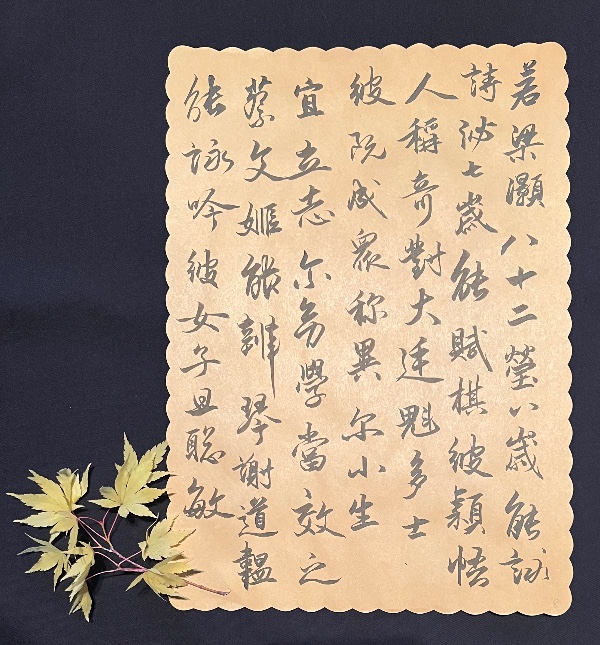 若梁灝八十二瑩八歲能詠
詩泌七歲能賦棋彼穎悟
人稱奇對大廷魁多士
彼既成眾称異尔小生
宜立志尔幼學當效之
蔡文姬能辨琴謝道韞
能詠吟彼女子且聰敏